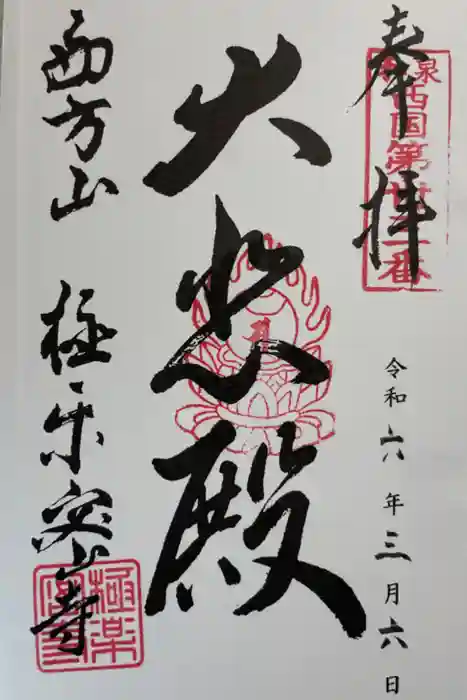 奉拝
西国第
番
令和六年三月六日
大悲殿
西方山 極楽密寺
極楽